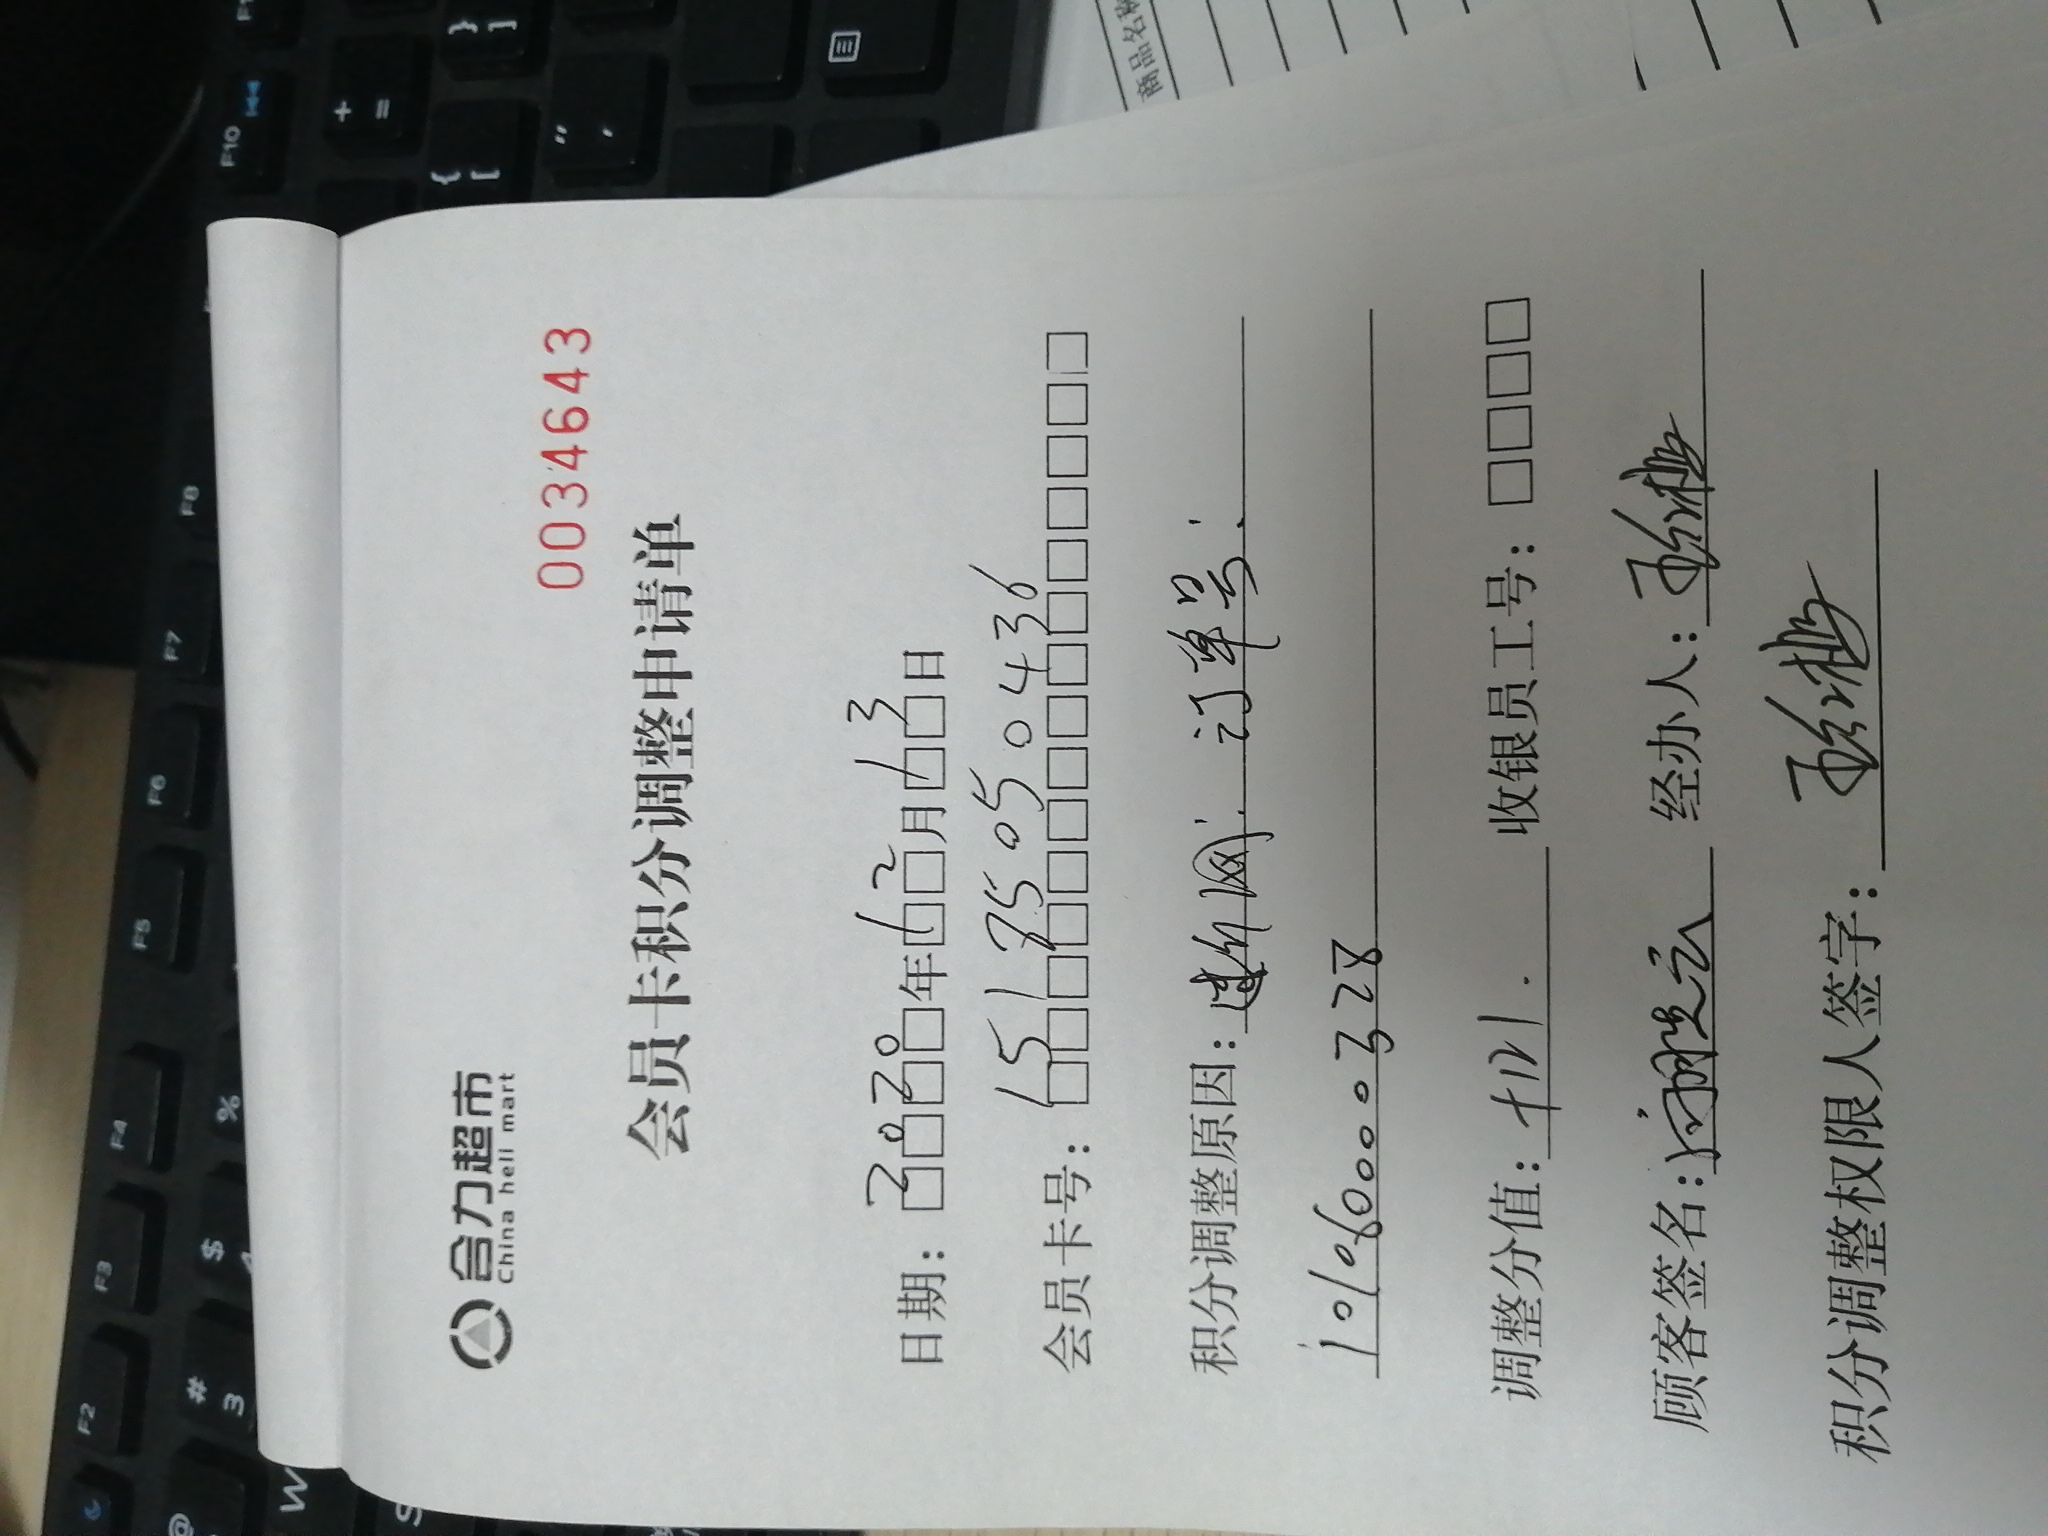 合力超市
China heli mart
0034643
会员卡积分调整申请单
日期：2020年12月13日
会员卡号：15175050436
积分调整原因：断网. 订单号:
10160000328
调整分值：+121.
收银员工号：□□□□
顾客签名：
经办人：
积分调整权限人签字：
商品名称
F10
F8
F7
F6
F5
F4
F3
F2